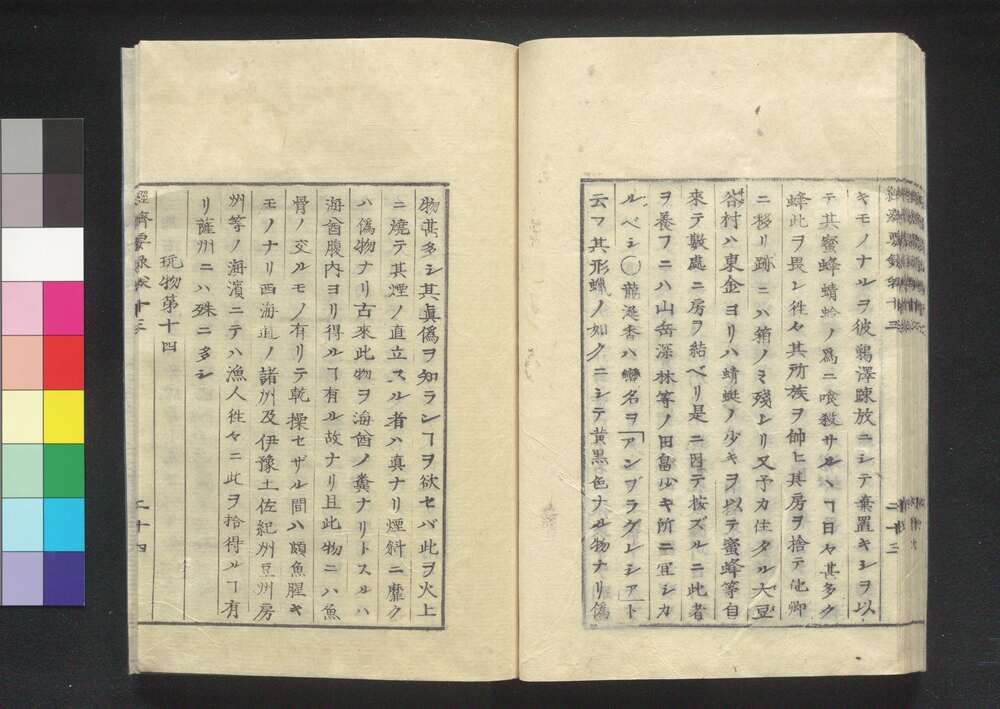 キモノナルヲ彼鷄澤踈放ニシテ棄置キシヲ以
テ其蜜蜂蜻蛉ノ爲ニ喰殺サルヽヿ日々甚多ク
蜂此ヲ畏レ徃々其所族ヲ帥ヒ其房ヲ捨テ他鄕
ニ移リ跡ニハ箱ノミ殘レリ又予カ住タル大豆
谷村ハ東金ヨリハ蜻蜓ノ少キヲ以テ蜜蜂等自
來テ數處ニ房ヲ結ベリ是ニ因テ按ズルニ此者
ヲ養フニハ山岳深林等ノ田畠少キ所ニ宜シカ
ルベシ〇龍涎香ハ蠻名ヲアンブラグレシアト
云フ其形蝋ノ如クニシテ黄黒色ナル物ナリ僞
二十三
物甚多シ其眞僞ヲ知ランヿヲ欲セバ此ヲ火上
ニ燒テ其煙ノ直立スル者ハ真ナリ煙斜ニ靡ク
ハ僞物ナリ古來此物ヲ海酋ノ糞ナリトスルハ
海酋腹内ヨリ得ルヿ有ル故ナリ且此物ニハ魚
骨ノ交ルモノ有リテ乾操セザル間ハ頗魚腥キ
モノナリ西海道ノ諸州及伊豫土佐紀州豆州房
州等ノ海濱ニテハ漁人徃々ニ此ヲ拾得ルヿ有
リ薩州ニハ殊ニ多シ
玩物第十四
經濟要録卷十三
二十四